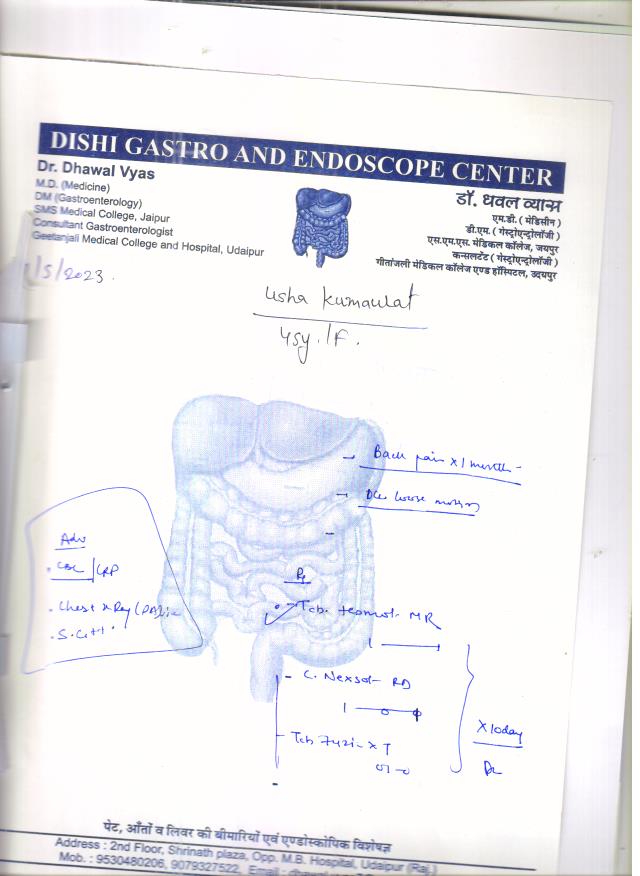 DISHI GASTRO AND ENDOSCOPE CENTER
Dr. Dhawal Vyas
M.D. (Medicine)
DM (Gastroenterology)
SMS Medical College, Jaipur
Consultant Gastroenterologist
Geetanjali Medical College and Hospital, Udaipur
डॉ. धवल व्यास
एम.डी. ( मेडिसीन )
डी.एम. ( गेस्ट्रोएन्ट्रोलॉजी )
एस.एम.एस. मेडिकल कॉलेज, जयपुर
कन्सलटेंट ( गेस्ट्रोएन्ट्रोलॉजी )
गीतांजली मेडिकल कॉलेज एण्ड हॉस्पिटल, उदयपुर
/5/2023.
Usha Kumawat
45y./F.
- Back pain x 1 month -
- loose motion
Adv
. CBC/CRP
. Chest x Ray (PA)
Rx
Tab. MR
1
- C. Nexsol- RD
1 0
- Tab
x 10day
पेट, आँतों व लिवर की बीमारियों एवं एण्डोस्कोपिक विशेषज्ञ
Address : 2nd Floor, Shrinath plaza, Opp. M.B. Hospital, Udaipur (Raj.)
Mob. : 9530480206, 9079327522, Email :